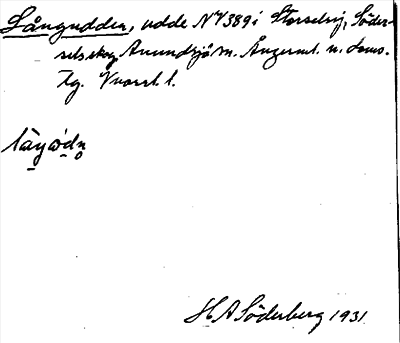 Långudden, udde NV389 i Storselsjö, Söder-
selsskog, Anundsjö sn. Ångerml. n. doms.
tg. Vnorrl. l.
lå̀ŋὼdn̥
H A Söderberg 1931